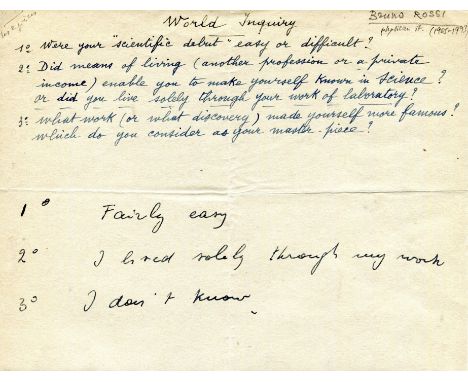 World Inquiry
BRUNO ROSSI
physicien it. (1905-1993)
1º Were your "scientific debut" easy or difficult?
2º Did means of living (another profession or a private
income) enable you to make yourself known in Science?
or did you live solely through your work of laboratory?
3º What work (or what discovery) made yourself more famous?
which do you consider as your master-piece?
1º Fairly easy
2º I lived solely through my work
3º I don't know